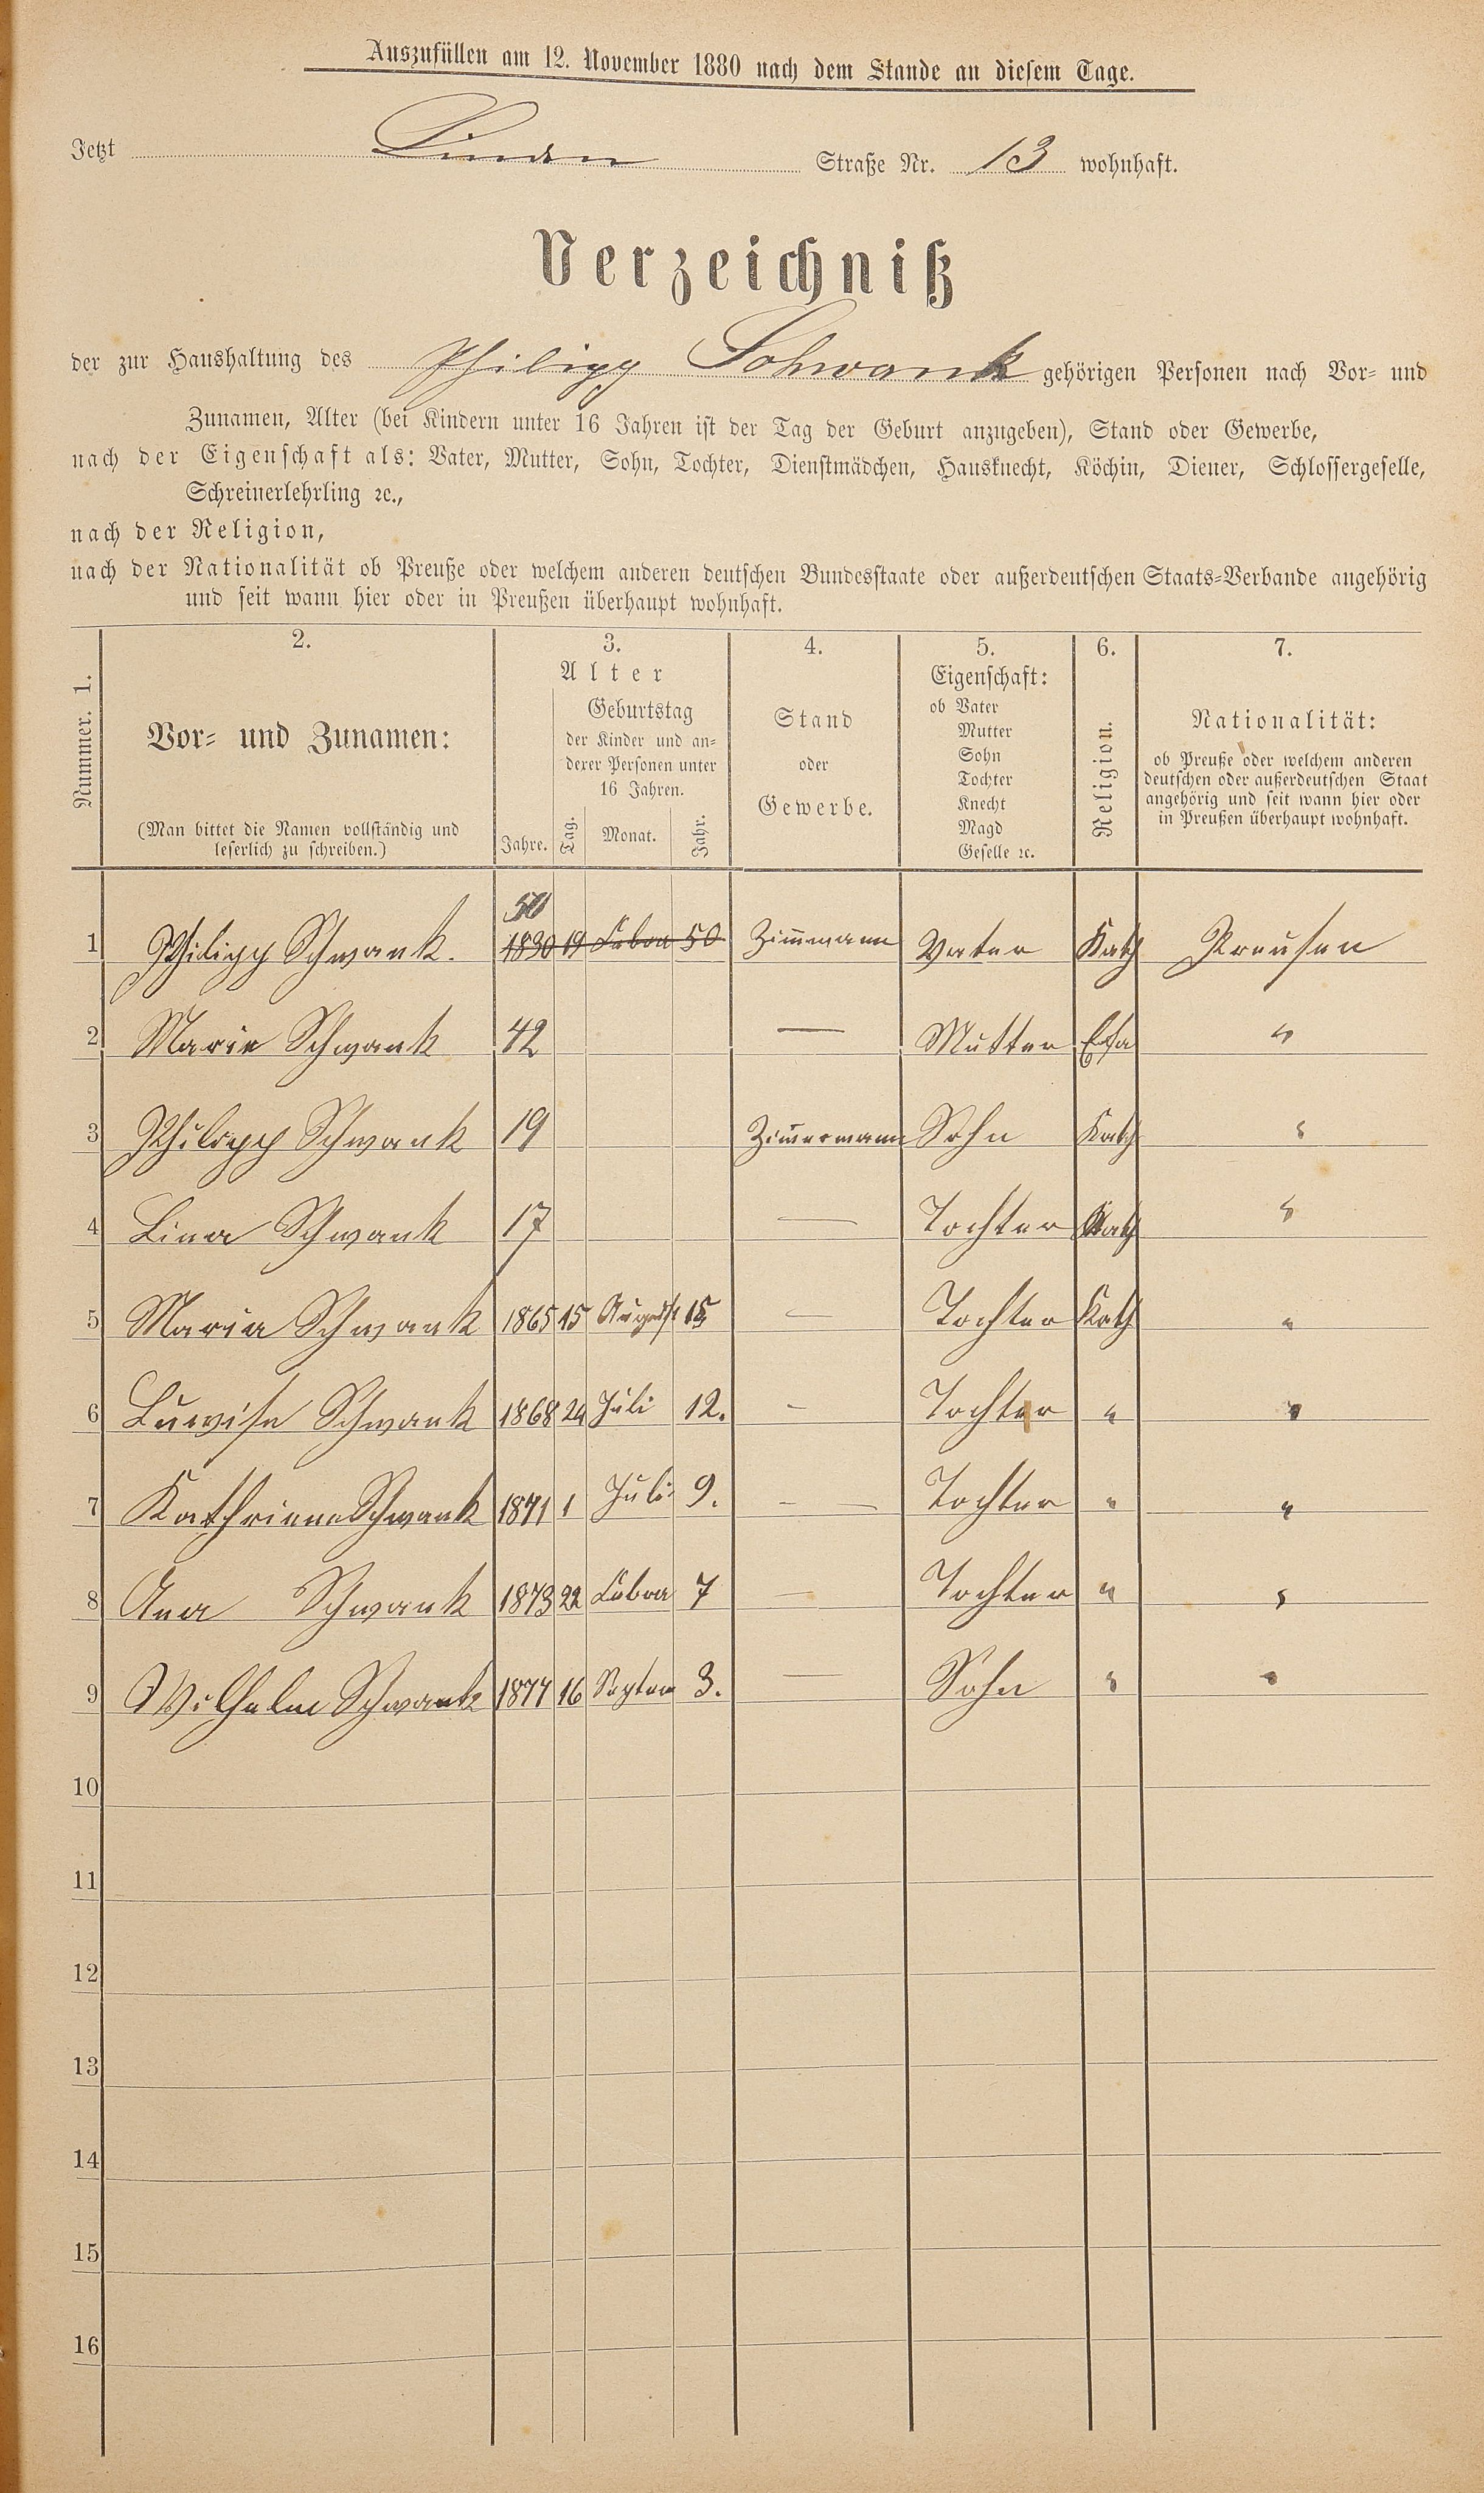 Auszufüllen am 12. November 1880 nach dem Stande an diesem Tage.
Jetzt Linden Straße Nr. 13 wohnhaft.
Verzeichniß
der zur Haushaltung des Philipp Schwank gehörigen Personen nach Vor- und
Zunamen, Alter (bei Kindern unter 16 Jahren ist der Tag der Geburt anzugeben), Stand oder Gewerbe,
nach der Eigenschaft als: Vater, Mutter, Sohn, Tochter, Dienstmädchen, Hausknecht, Köchin, Diener, Schlossergeselle,
Schreinerlehrling ꝛc.,
nach der Religion,
nach der Nationalität ob Preuße oder welchem anderen deutschen Bundesstaate oder außerdeutschen Staats-Verbande angehörig
und seit wann hier oder in Preußen überhaupt wohnhaft.
Nummer. 1.
2.
Vor- und Zunamen:
(Man bittet die Namen vollständig und
leserlich zu schreiben.)
3.
Alter
Jahre.
Geburtstag
der Kinder und an-
derer Personen unter
16 Jahren.
Tag. Monat. Jahr.
4.
Stand
oder
Gewerbe.
5.
Eigenschaft:
ob Vater
Mutter
Sohn
Tochter
Knecht
Magd
Geselle ꝛc.
6.
Religion.
7.
Nationalität:
ob Preuße oder welchem anderen
deutschen oder außerdeutschen Staat
angehörig und seit wann hier oder
in Preußen überhaupt wohnhaft.
50
1 Philipp Schwank. 1830 19 Febra 50 Zim̅mann Vater Kath Preusen
2 Marie Schwank 42 — Mutter "
3 Philipp Schwank 19 Zimmermann Sohn Kath "
4 Lina Schwank 17 — Tochter Kath "
5 Maria Schwank 1865 15 August 15 — Tochter Kath "
6 Luwise Schwank 1868 24 Juli 12. - Tochter " "
7 Kathrinna Schwank 1871 1 Juli 9. - — Tochter " "
8 Ana Schwank 1873 22 Febra 7 — Tochter " "
9 Wilhelm Schwank 1877 16 Septem 3. — Sohn " "
10
11
12
13
14
15
16